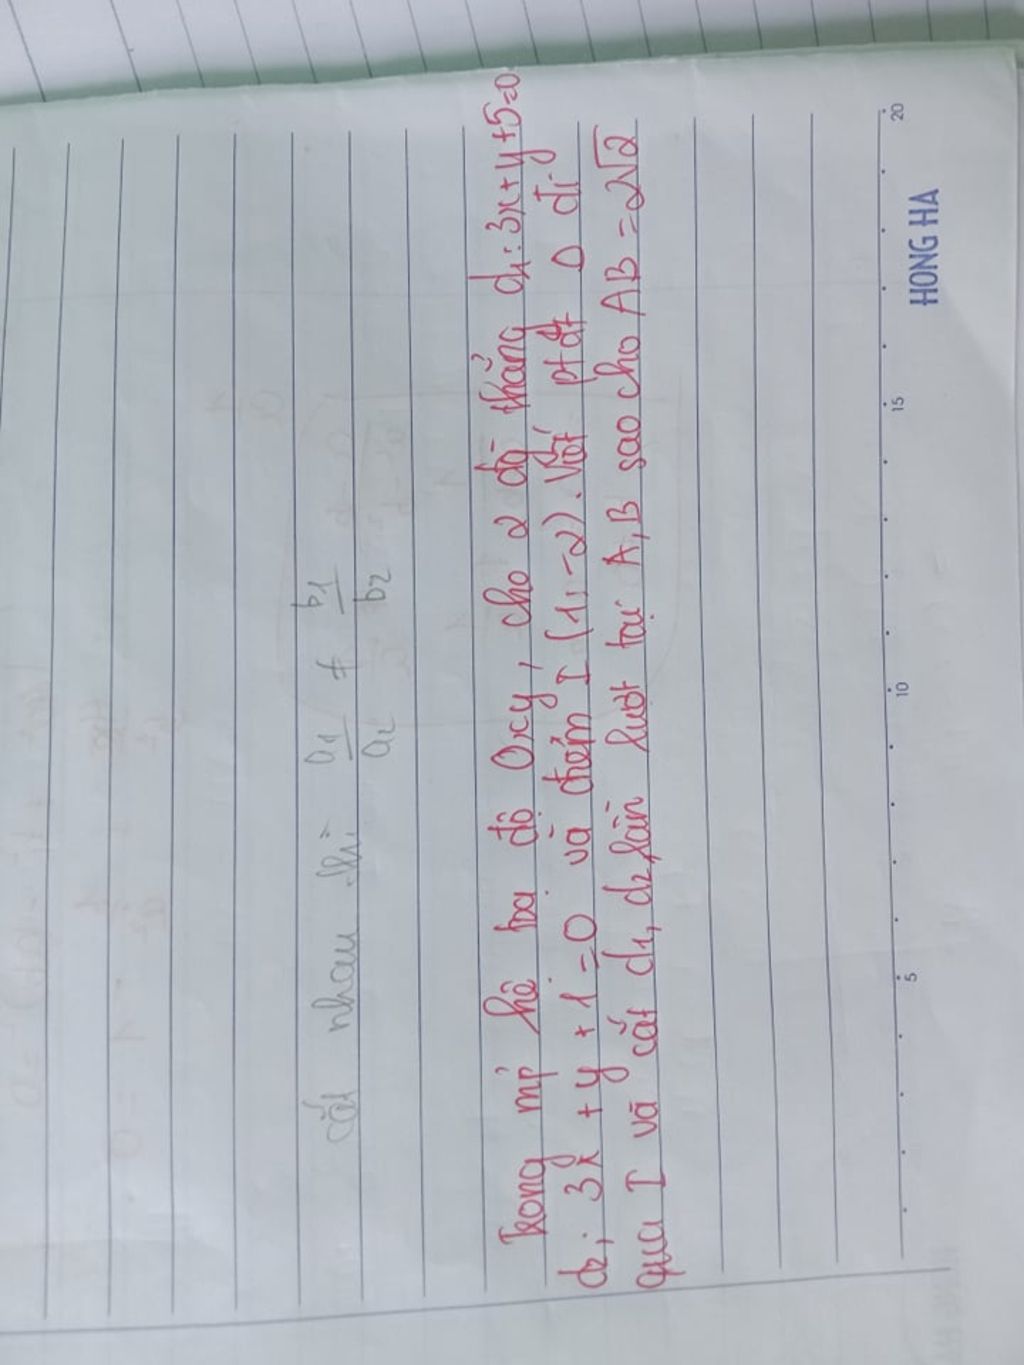 cắt nhau thì a1/a2 ≠ b1/b2
Trong mp hệ toạ độ Oxy, cho 2 đg thẳng d1: 3x+y+5=0
d2: 3x + y + 1 = 0 và điểm I (1; -2). Viết ptđt Δ đi
qua I và cắt d1, d2 lần lượt tại A, B sao cho AB = 2√2
5 10 15 20
HONG HA